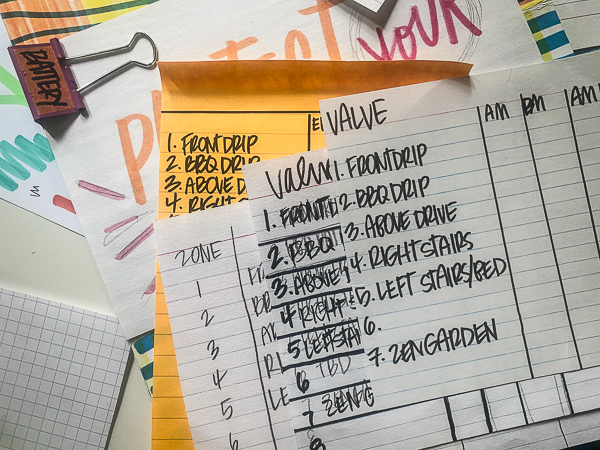 BATTERY
PROTECT YOUR
1. FRONT DRIP
2. BBQ DRIP
3. ABOVE D
4. RIGHT
VALVE AM PM AM
1. FRONT DRIP
2. BBQ DRIP
3. ABOVE DRIVE
4. RIGHT STAIRS
5. LEFT STAIRS/BED
6.
7. ZEN GARDEN
Valv
1. FRONT
2. BBQ
3. ABOVE
4 RIGHT
5 LEFT STA
6 TBD
7 ZEN G
8
ZONE
1
2
3
4
5
6
BB
RI
LE